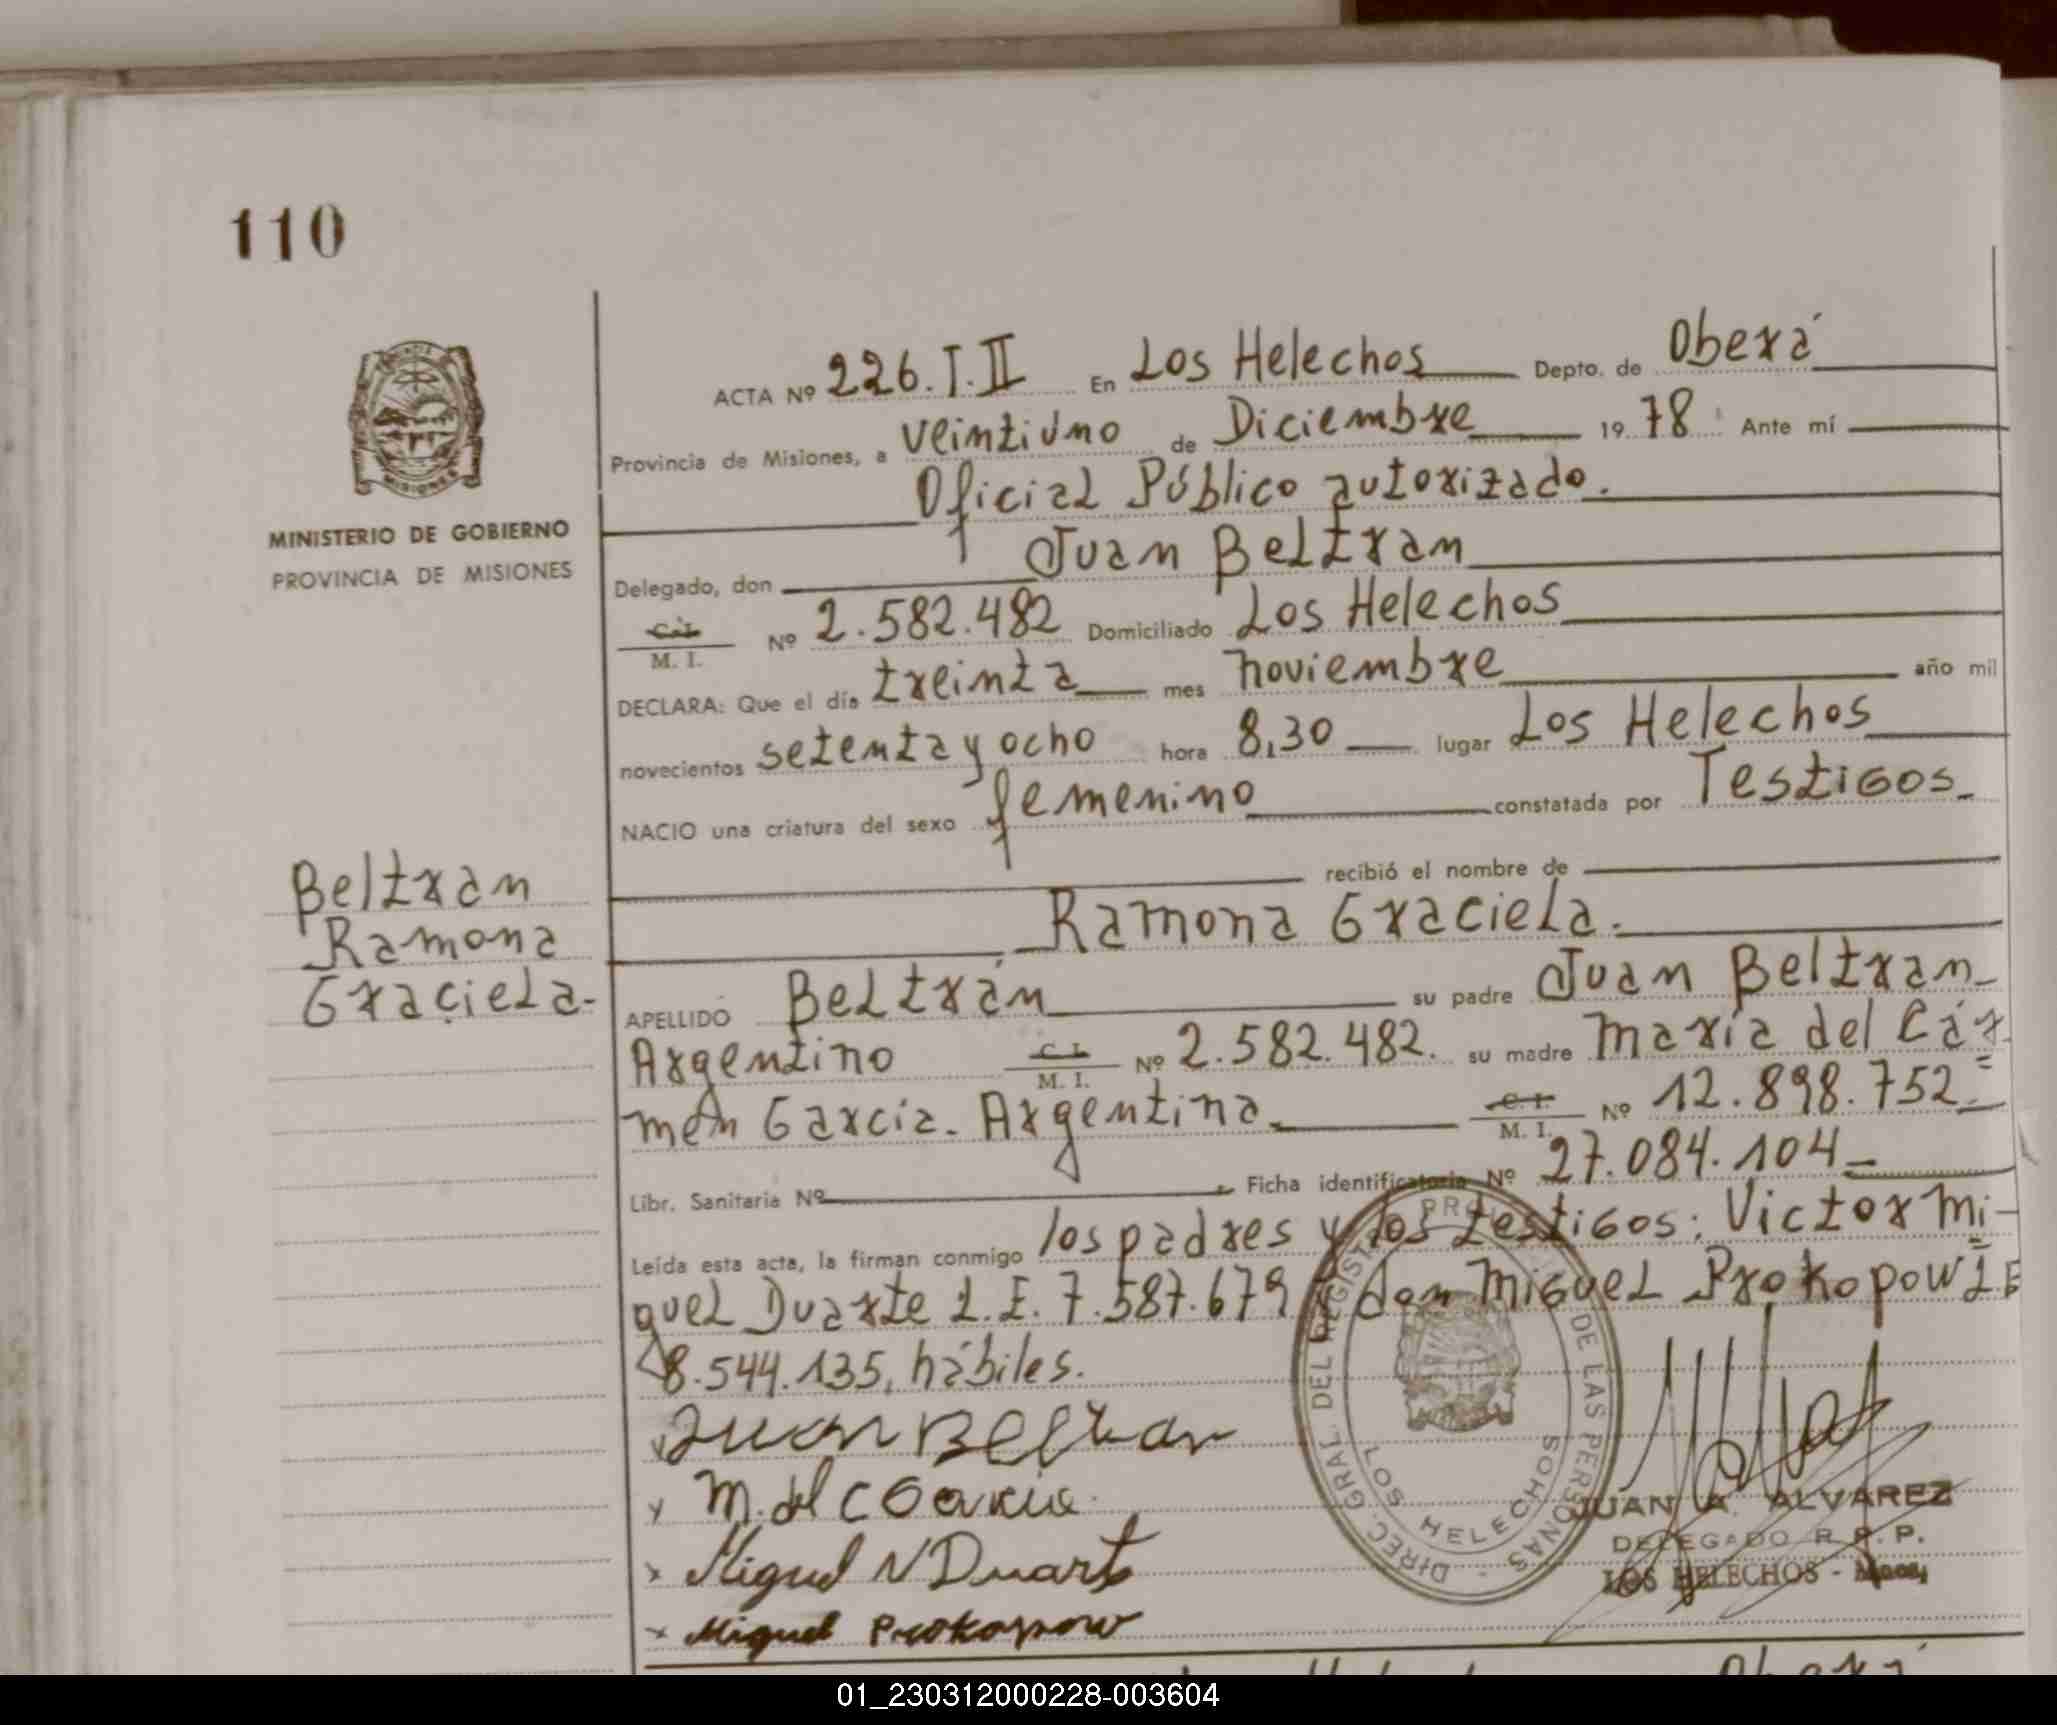 110
MINISTERIO DE GOBIERNO
PROVINCIA DE MISIONES
ACTA Nº 226.T.II En Los Helechos Depto. de Oberá
Provincia de Misiones, a veintiuno de Diciembre 1978 Ante mí
Oficial Público autorizado.
Delegado, don Juan Beltran
C.I. M. I. Nº 2.582.482 Domiciliado Los Helechos
DECLARA: Que el día treinta mes noviembre año mil
novecientos setenta y ocho hora 8,30 lugar Los Helechos
NACIO una criatura del sexo femenino constatada por Testigos
recibió el nombre de
Beltran
Ramona
Graciela.-
Ramona Graciela.
APELLIDO Beltrán su padre Juan Beltran
Argentino C.I. M. I. Nº 2.582.482. su madre María del Cár
men Garcia. Argentina C.I. M. I. Nº 12.898.752
Libr. Sanitaria Nº Ficha identificatoria Nº 27.084.104
Leída esta acta, la firman conmigo los padres y los testigos: Victor Mi-
guel Duarte L.E. 7.587.679 y don Miguel Prokopow LE
8.544.135, hábiles.
Juan Beltran
M. del C Garcia
Miguel V Duarte
Miguel Prokopow
DIREC. GRAL. DEL REGISTRO PROVINCIAL DE LAS PERSONAS
LOS HELECHOS
JUAN A. ALVAREZ
DELEGADO R. P. P.
LOS HELECHOS -
01_230312000228-003604